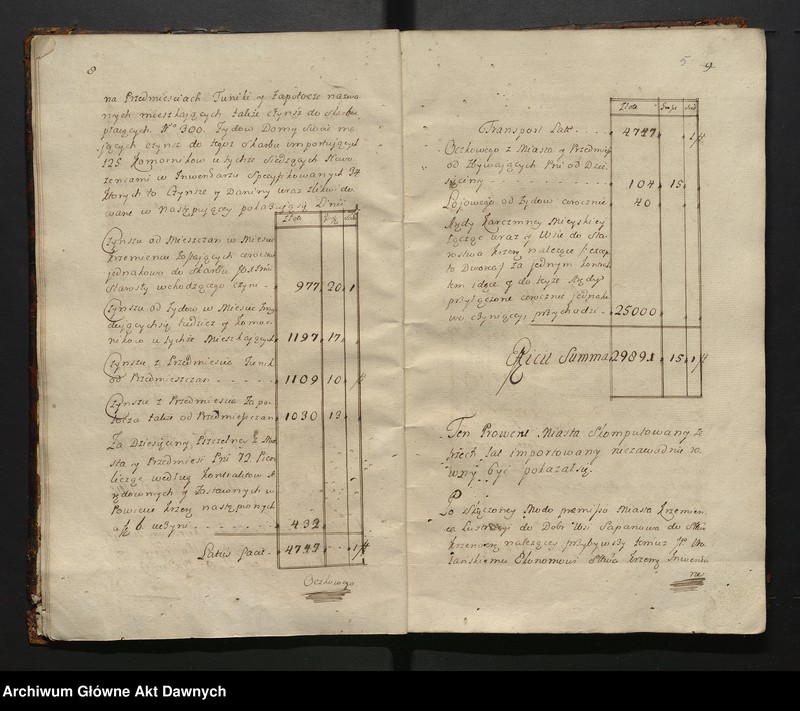 8
na Przedmieściach Tuniki y Zapotocze nazwa
nych mieszkaiących także Czynsz do skarbu
płacących No 300. Żydow Domy swoie ma
iących czynsz do tegoż skarbu importuiących
125 Komornikow w tychże siedzących Stawo
zeniami w Inwentarzu specyfikowanych 34
ktorych to Czynsze y Daniny wraz zlikwido
wane w następuiący pokazuią się
Złote
Czynszu od Mieszczan w Mieście
Krzemieńcu płacących corocznie
jednakowo do Skarbu
Starosty wchodzącego czyni - 977 20 1
Czynszu od Żydow w Mieście
tudziesz y Komor
nikow w tychże Mieszkaiących 1197 17
Czynszu z Przedmieścia Tunik
od Przedmieszczan - - - - - 1109 10
Czynszu z Przedmieścia Zapo
tocza także od Przedmieszczan 1030 13
Za Dziesięcinę Pszczelną z Mia
sta y Przedmieść Pni 72 Pień
licząc według Kontraktow A
rędownych y Zastawnych w
Powiecie Krzem następnych
a f 6 uczyni - - - - - - - 432
Latus facit - 4747 - - 1
Oczkowego
5 9
Złota
Transport Lat. - - - 4747 1
Oczkowego z Miasta y Przedmieść
od Zbywaiących Pni od Dzie
sięciny - - - - - - - - 104 15
Łojowego od Żydow corocznie 40
Aędy Karczmney Mieyskiey
łącząc wraz y Wsie do Sta
rostwa Krzem należące
to Dworca / za jednym kontrak
tem idące y do teyże Arędy
przyłączone corocznie jednako
wo czyniącey, przychodzi - 25000
Facit Summa 29891 15 1
Ten Prowent Miasta skomputowany z
trzech lat importowany niezawodnie ro
wny być pokazał się.
Po skączoney Modo praemisso Miasta Krzemien
ca Lustracyi do Dobr Wsi Sapanowa do Sttwa
Krzemien należącey przybywszy temuż JP.
Ekonomowi Sttwa Krzem Inwenta
rze
Archiwum Główne Akt Dawnych